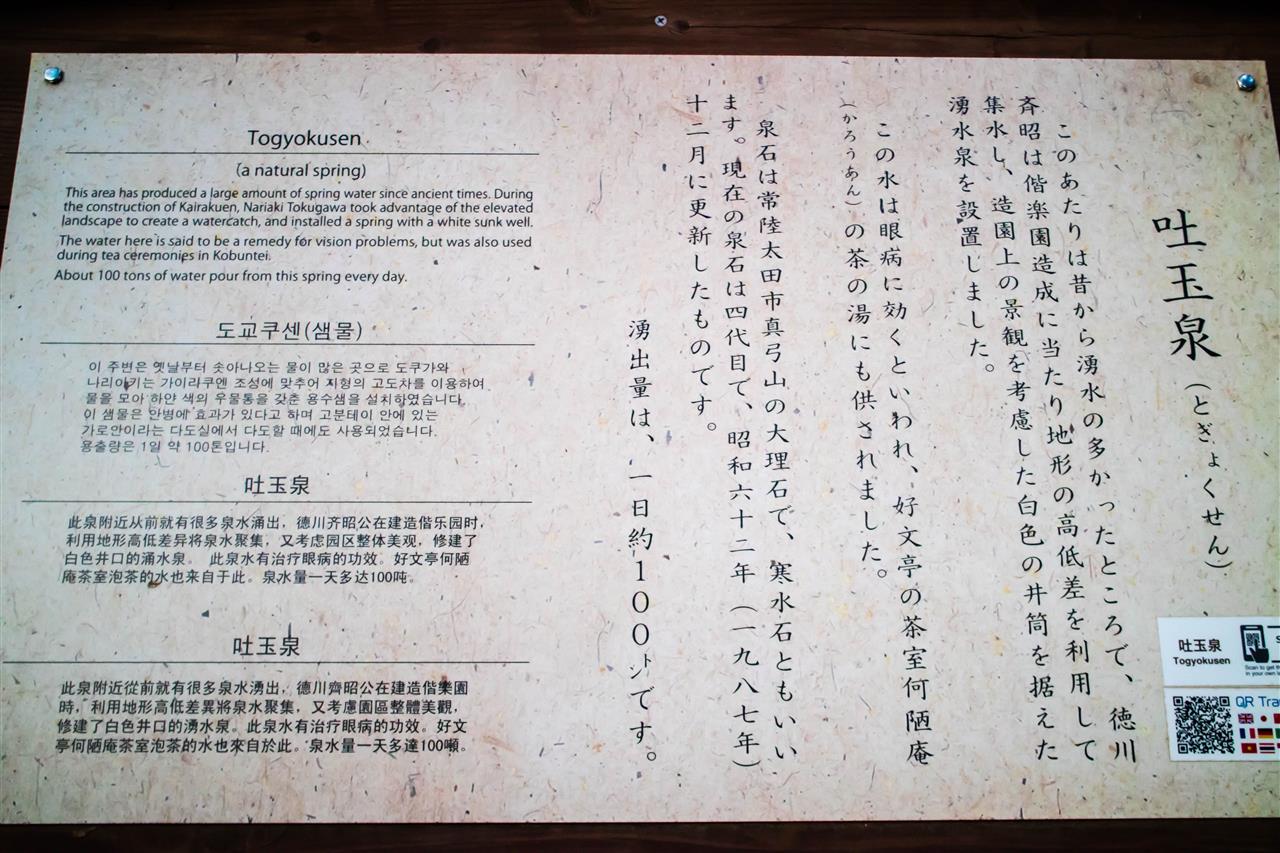 吐玉泉（とぎょくせん）
このあたりは昔から湧水の多かったところで、徳川
斉昭は偕楽園造成に当たり地形の高低差を利用して
集水し、造園上の景観を考慮した白色の井筒を据えた
湧水泉を設置しました。
この水は眼病に効くといわれ、好文亭の茶室何陋庵
（かろうあん）の茶の湯にも供されました。
泉石は常陸太田市真弓山の大理石で、寒水石ともいい
ます。現在の泉石は四代目で、昭和六十二年（一九八七年）
十二月に更新したものです。
湧出量は、一日約100㌧です。
Togyokusen
(a natural spring)
This area has produced a large amount of spring water since ancient times. During
the construction of Kairakuen, Nariaki Tokugawa took advantage of the elevated
landscape to create a watercatch, and installed a spring with a white sunk well.
The water here is said to be a remedy for vision problems, but was also used
during tea ceremonies in Kobuntei.
About 100 tons of water pour from this spring every day.
도교쿠센(샘물)
이 주변은 옛날부터 솟아나오는 물이 많은 곳으로 도쿠가와
나리아키는 가이라쿠엔 조성에 맞추어 지형의 고도차를 이용하여
물을 모아 하얀 색의 우물통을 갖춘 용수샘을 설치하였습니다.
이 샘물은 안병에 효과가 있다고 하며 고분테이 안에 있는
가로안이라는 다도실에서 다도할 때에도 사용되었습니다.
용출량은 1일 약 100톤입니다.
吐玉泉
此泉附近从前就有很多泉水涌出，德川齐昭公在建造偕乐园时，
利用地形高低差异将泉水聚集，又考虑园区整体美观，修建了
白色井口的涌水泉。 此泉水有治疗眼病的功效。好文亭何陋
庵茶室泡茶的水也来自于此。泉水量一天多达100吨。
吐玉泉
此泉附近從前就有很多泉水湧出，德川齊昭公在建造偕樂園
時，利用地形高低差異將泉水聚集，又考慮園區整體美觀，
修建了白色井口的湧水泉。此泉水有治疗眼病的功效。好文
亭何陋庵茶室泡茶的水也來自於此。泉水量一天多達100噸。
吐玉泉
Togyokusen
Scan to get th
in your own la
QR Tra